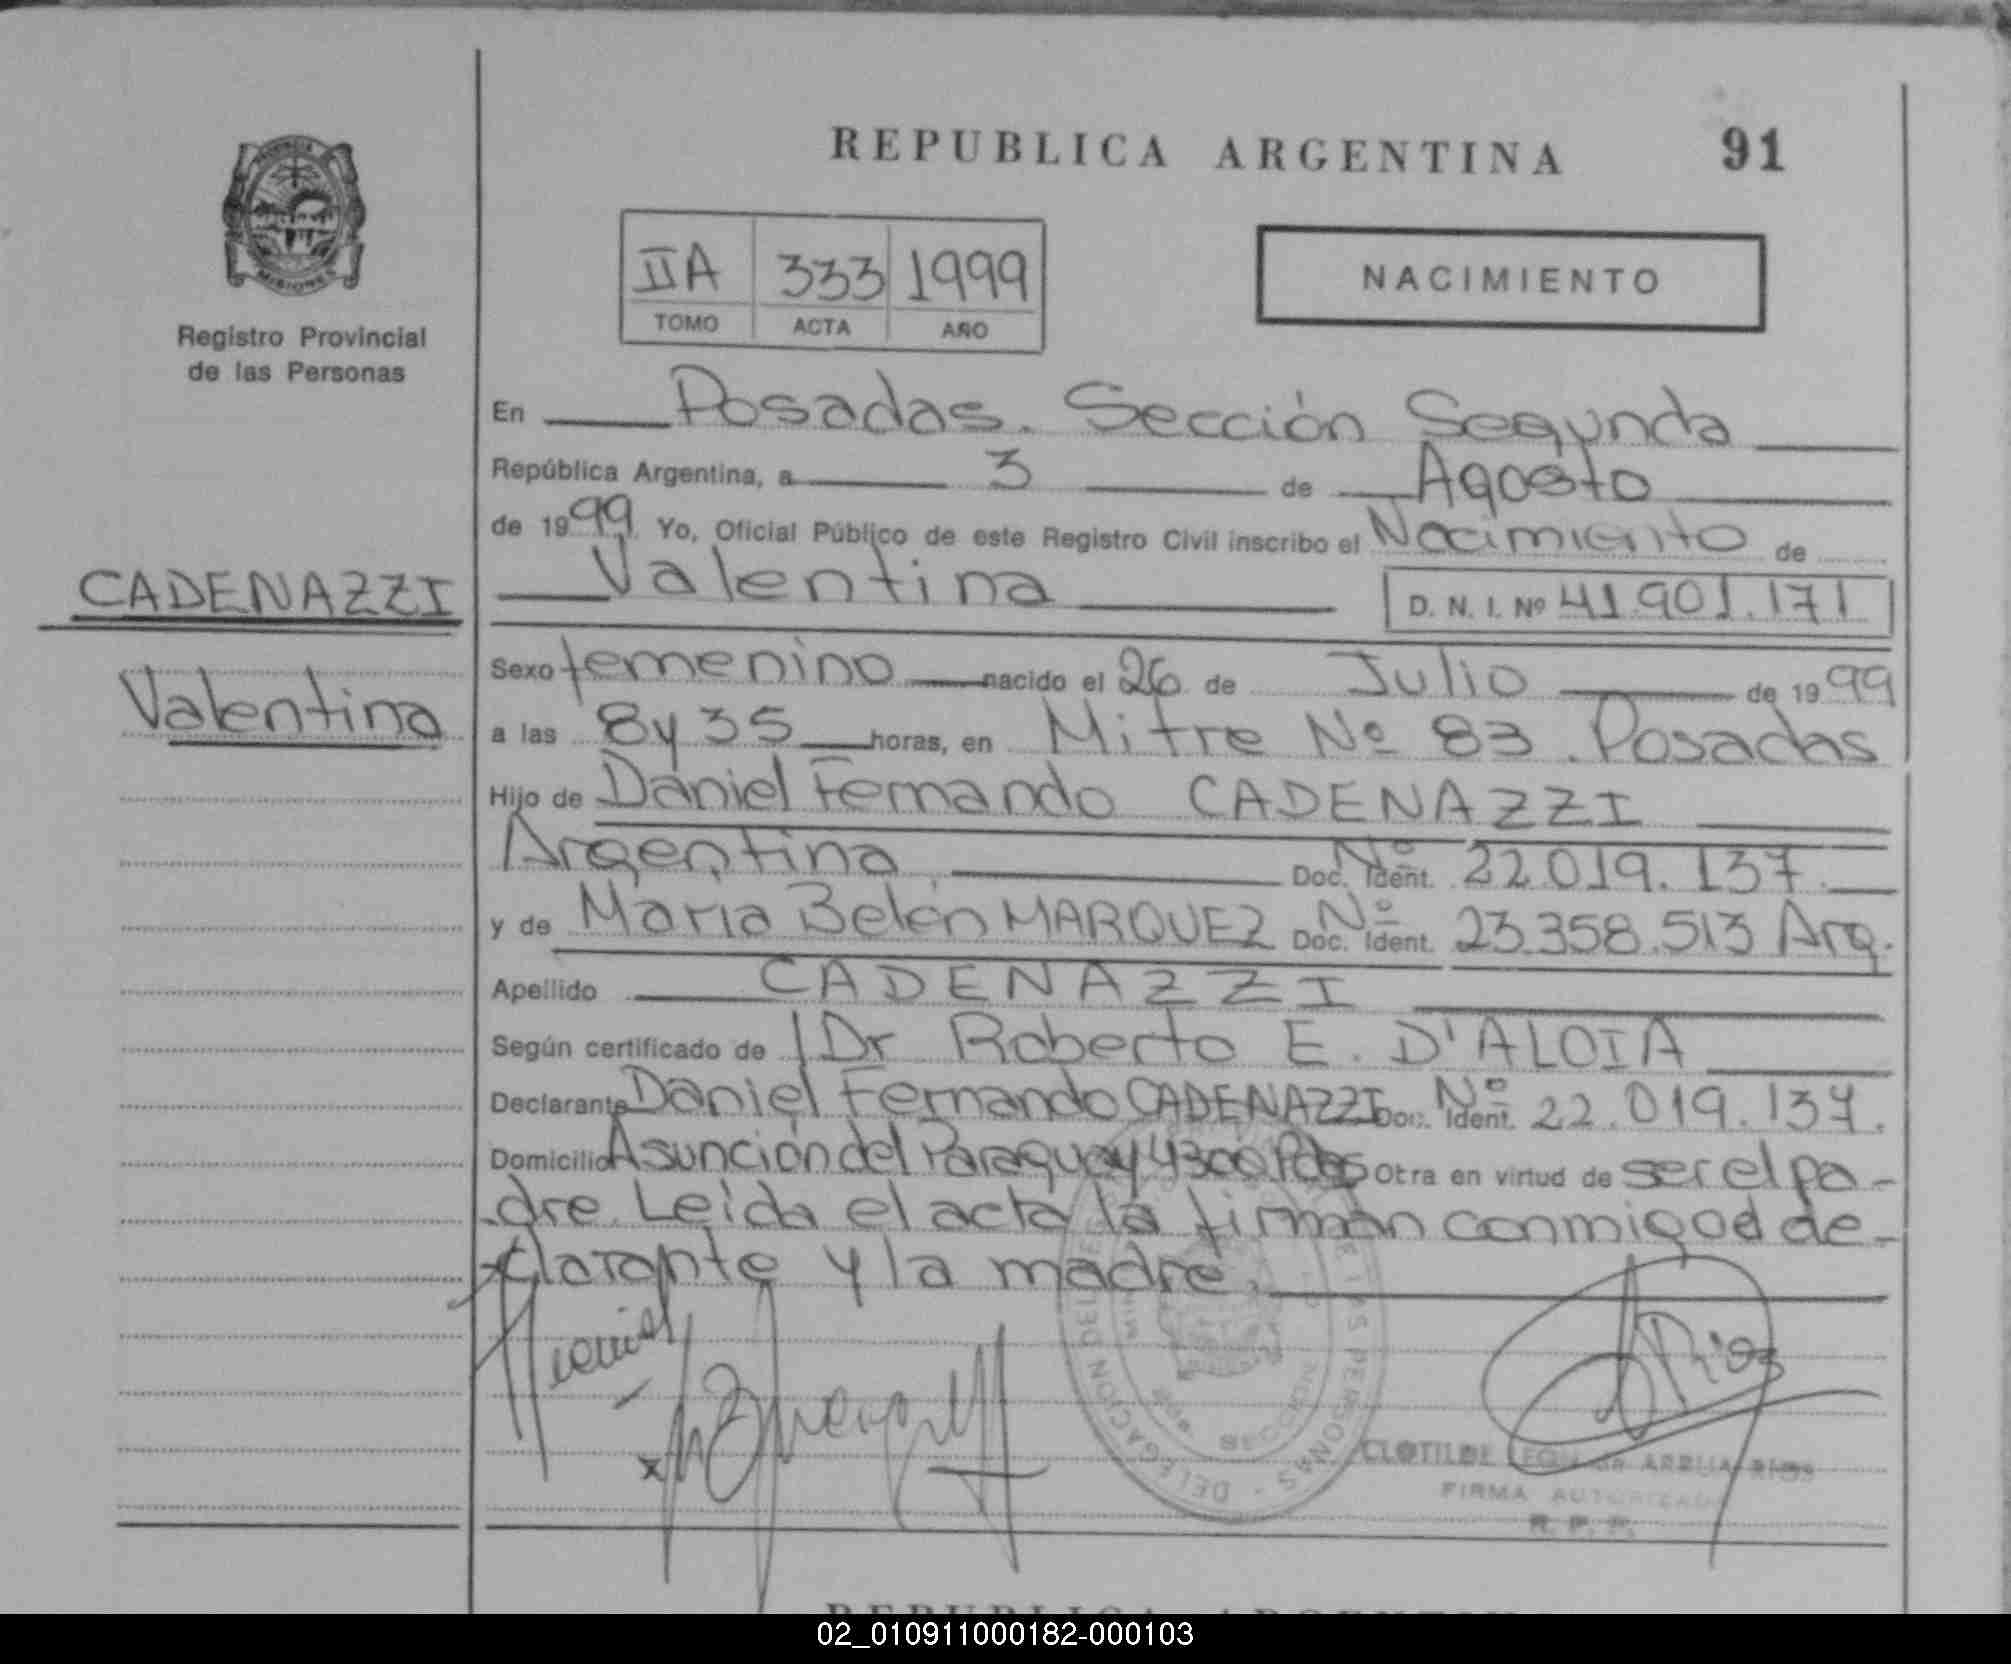 REPUBLICA ARGENTINA 91
PROVINCIA
MISIONES
Registro Provincial
de las Personas
IIA 333 1999
TOMO ACTA AÑO
NACIMIENTO
En Posadas. Sección Segunda
República Argentina, a 3 de Agosto
de 1999 Yo, Oficial Público de este Registro Civil inscribo el Nacimiento de
Valentina D. N. I. Nº 41.901.171
CADENAZZI
Valentina
Sexo femenino nacido el 26 de Julio de 1999
a las 8 y 35 horas, en Mitre Nº 83. Posadas
Hijo de Daniel Fernando CADENAZZI
Argentina Doc. Ident. Nº 22.019.137.
y de María Belén MARQUEZ Doc. Ident. Nº 23.358.513 Arg.
Apellido CADENAZZI
Según certificado de Dr Roberto E. D'ALOIA
Declarante Daniel Fernando CADENAZZI Doc. Ident. Nº 22.019.137.
Domicilio Asunción del Paraguay 4300 Pdas Otra en virtud de ser el pa-
dre. Leída el acta la firman conmigo el de-
clarante y la madre.
Rios
DELEGACION DE LAS PERSONAS
CLOTILDE DE ARRUA RIOS
FIRMA AUTORIZADA
R. P. P.
REPUBLICA ARGENTINA
02_010911000182-000103